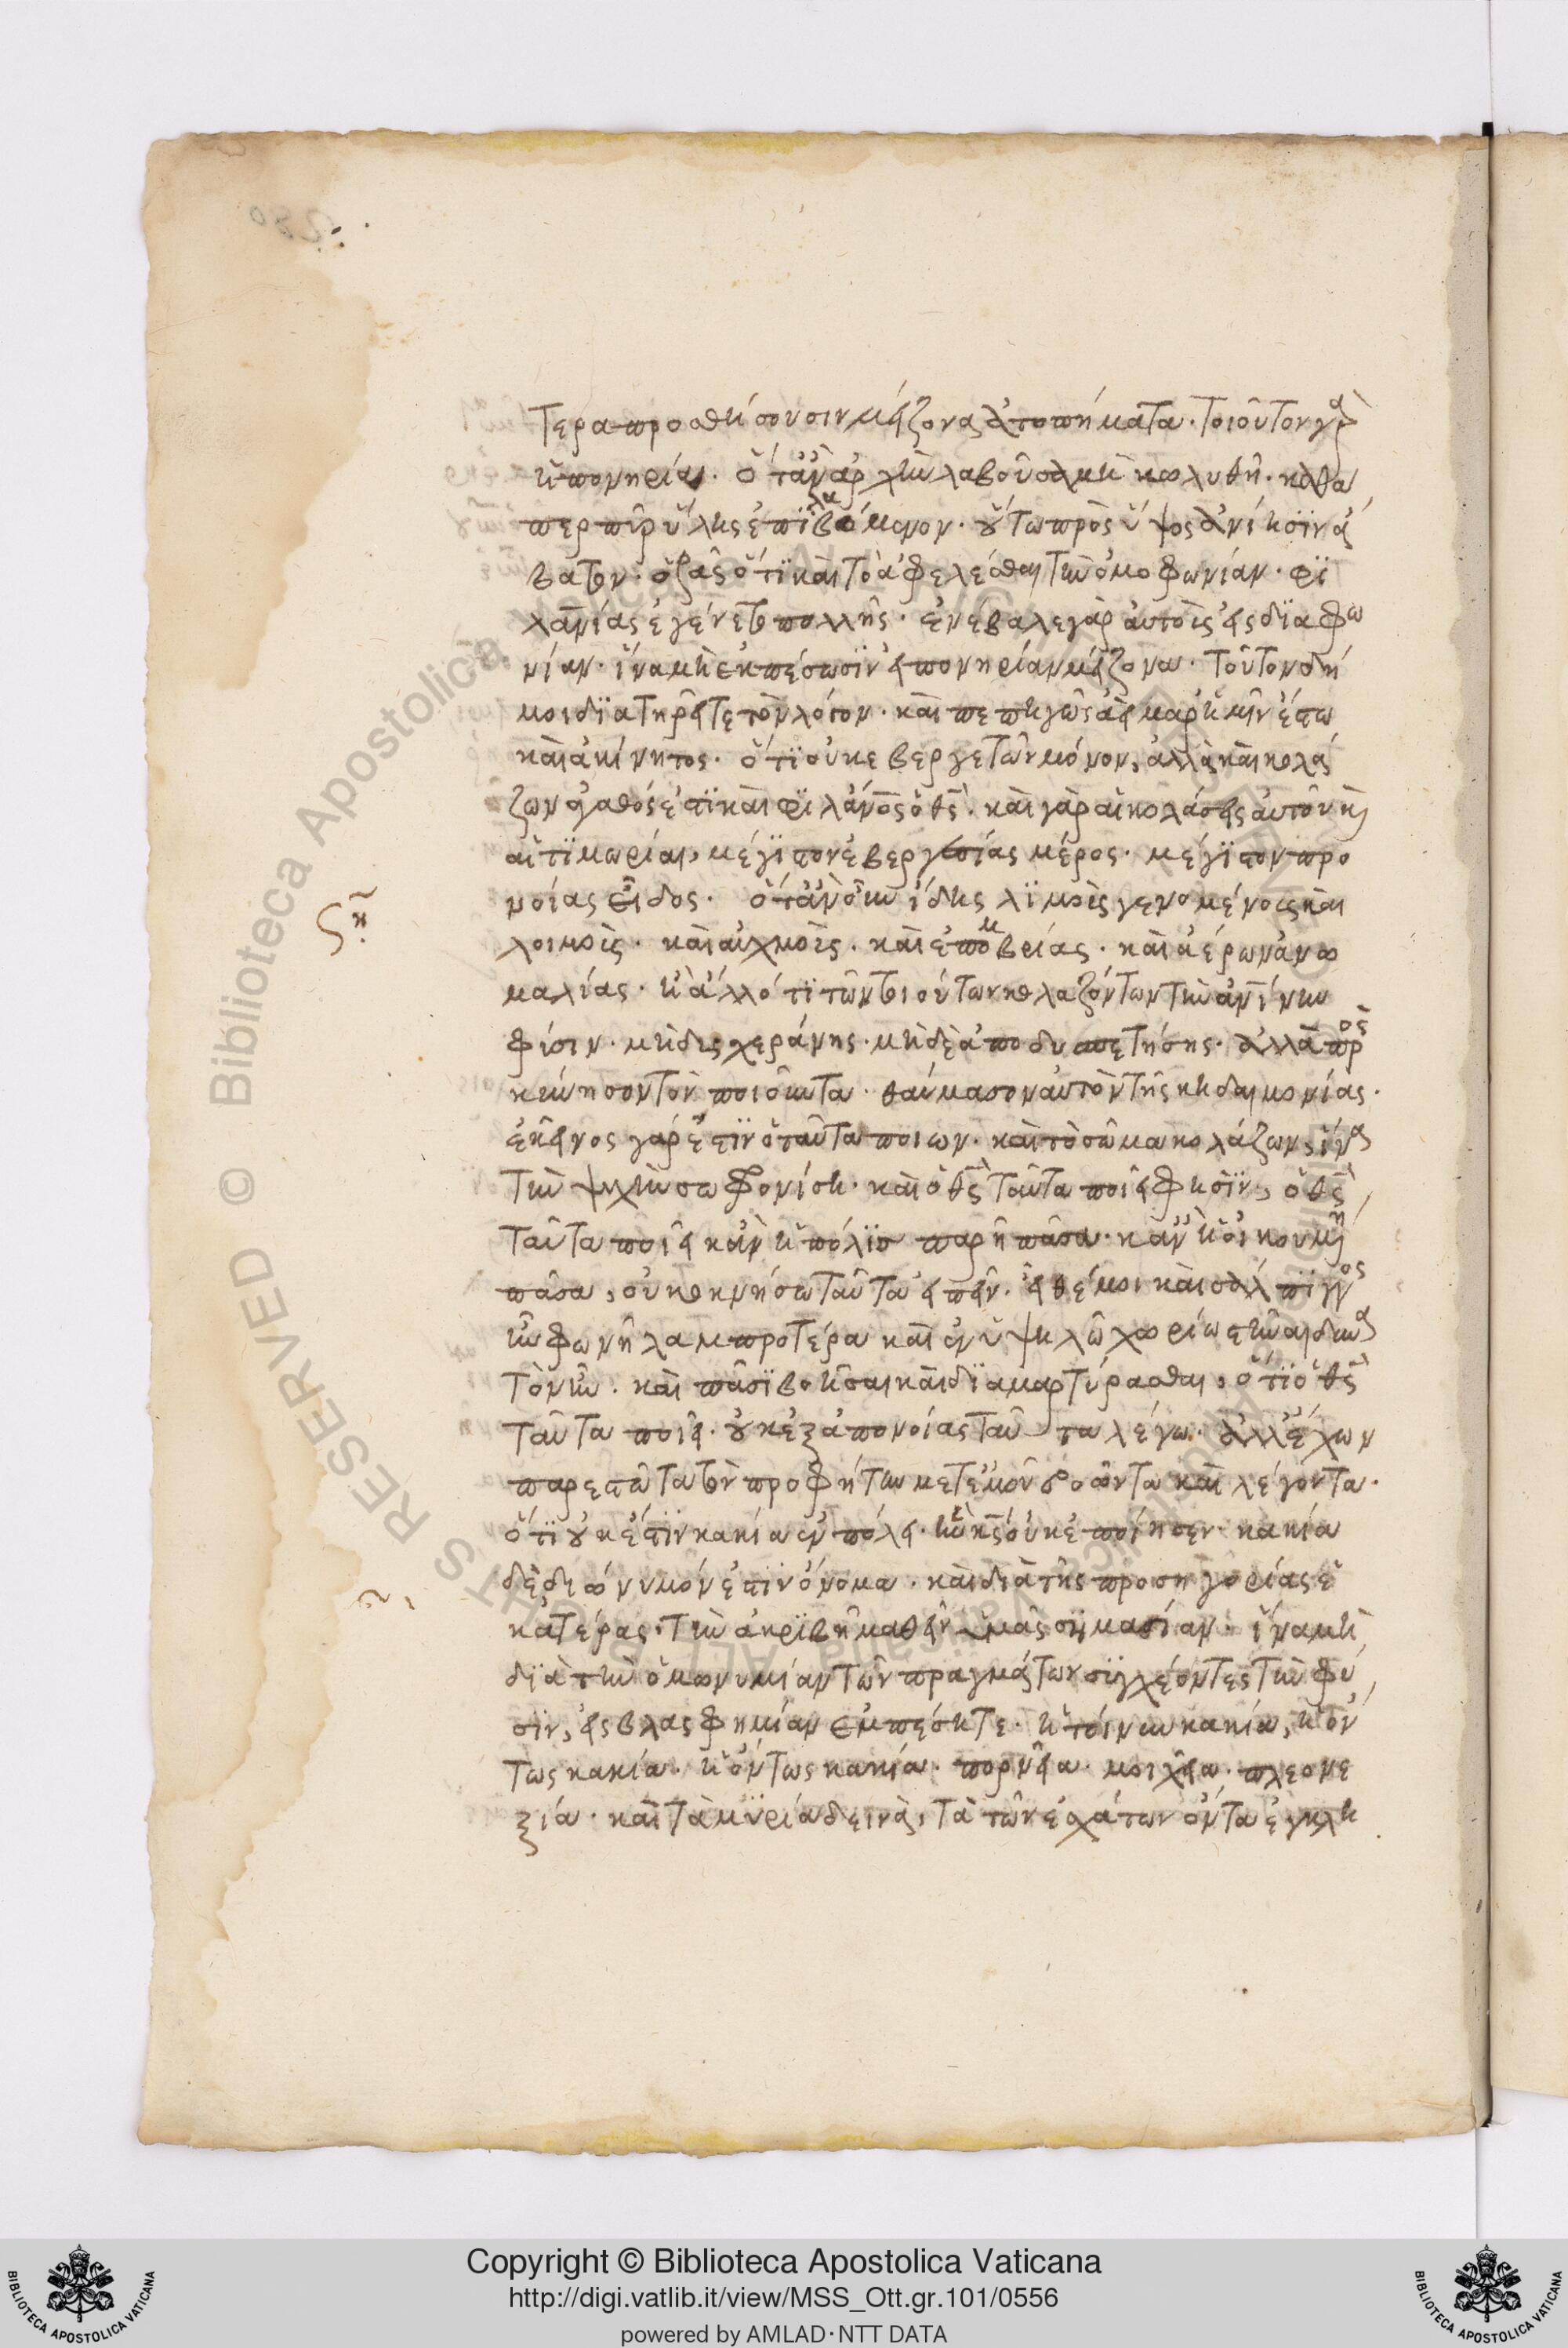 τερα προσθήσουσιν μείζονα ἀτοπήματα· τοιοῦτον γὰρ
ἡ πονηρία· ὅταν ἀρχὴν λαβοῦσα μὴ κωλυθῆ· καθά
περ πῦρ ὕλης ἐπϊλαβόμενον· οὕτω πρὸς ὕψος ἀνίησϊν ἄ
βατον· ὁρᾶς ὅτϊ καὶ τὸ ἀφελέσθαι τὴν ὁμοφωνίαν· φϊ
λανίας ἐγένετο πολλῆς· ἐνέβαλε γὰρ αὐτοῖς εἰς δϊαφω
νίαν· ἵνα μὴ ἐκπέσωσϊν εἰς πονηρίαν μείζονα· τοῦτον δή
μοι δϊατηρεῖτε τὸν λόγον· καὶ πεπηγὼς ἀεὶ παρ' ἡμῖν ἔστω
καὶ ἀκίνητος· ὅτϊ οὐκ ἐβεργετῶν μόνον, ἀλλὰ καὶ κολά
ζων ἀγαθός ἐστϊ καὶ φϊλάνος ὁ θς· καὶ γὰρ αἱ κολάσεις αὐτοῦ κ
αἱ τϊμωρίαι, μέγϊστον ἐβεργεσίας μέρος· μέγϊστον προ
νοίας εἶδος· ὅταν οὖν ἴδης λϊμοὺς γενομένους καὶ
λοιμοὺς· καὶ αὐχμοὺς· καὶ ἐπομβρίας· καὶ ἀέρων ἀνω
μαλίας· ἢ ἄλλό τϊ τῶν τοιούτων κολαζόντων τὴν ἀνίνην
φύσιν· μὴ δυσχεράνης· μὴ δὲ ἀποδυσπετήσης· ἀλλὰ προσ
κύνησον τὸν ποιοῦντα· θαύμασον αὐτὸν τῆς κηδαιμονίας·
ἐκεῖνος γάρ ἐστϊν ὁ ταῦτα ποιων· καὶ τὸ σῶμα κολάζων, ἵνα
τὴν ψυχὴν σωφρονίση· καὶ ὁ θς ταῦτα ποιεῖ φησϊν, ὁ θς
ταῦτα ποιεῖ κἂν ἡ πόλϊς παρῆ πᾶσα· κἂν ἡ οἰκουμένη
πᾶσα, οὐκ ὀκνήσω ταῦτα εἰπεῖν· εἴθέ μοι καὶ σάλπϊγγος
ἦν φωνὴ λαμπροτέρα καὶ ἐν ὑψηλῶ χωρίω στῆναι δυνα
τὸν ἦν· καὶ πᾶσϊ βοῆσαι καὶ δϊαμαρτύρασθαι, ὅτϊ ὁ θς
ταῦτα ποιεῖ· οὐκ ἐξ ἀπονοίας ταῦτα λέγω· ἀλλ' ἔχων
παρεστῶτα τὸν προφήτην μετ' ἐμοῦ βοῶντα καὶ λέγοντα·
ὅτϊ οὐκ ἔστϊν κακία ἐν πόλει· ἣν κς οὐκ ἐποίησεν· κακία
δὲ διώνυμόν ἐστϊν ὄνομα· καὶ διὰ τῆς προσηγορίας ἑ
κατέρας· τὴν ἀκρϊβῆ μαθεῖν ὑμᾶς σημασίαν· ἵνα μὴ
δϊὰ τὴν ὁμωνυμίαν τῶν πραγμάτων συγχέοντες τὴν φύ
σϊν, εἰς βλασφημίαν ἐμπέσητε· ἡ τοίνυν κακία, ἡ ὄν
τως κακία· ἡ ὄντως κακία· πορνεία· μοιχεία· πλεονε
ξία· καὶ τὰ μϋρία δεινὰ, τὰ τῶν ἐσχάτων ὄντα ἐγκλη